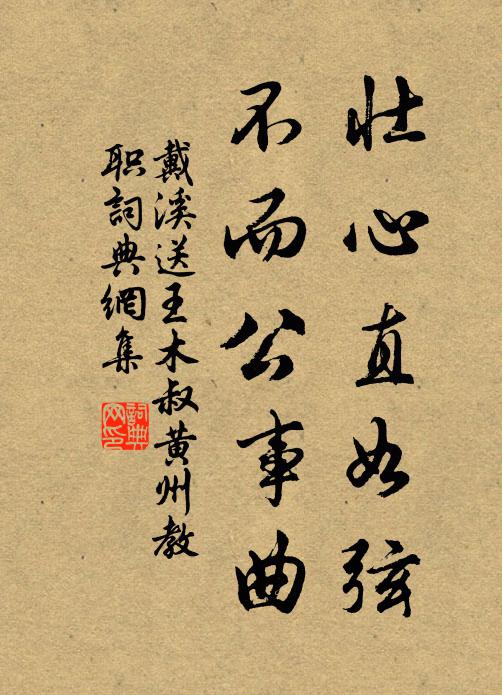 壮心直如弦
不而公事曲
戴溪送王木叔黄州教
职詞典網集
詞典网印